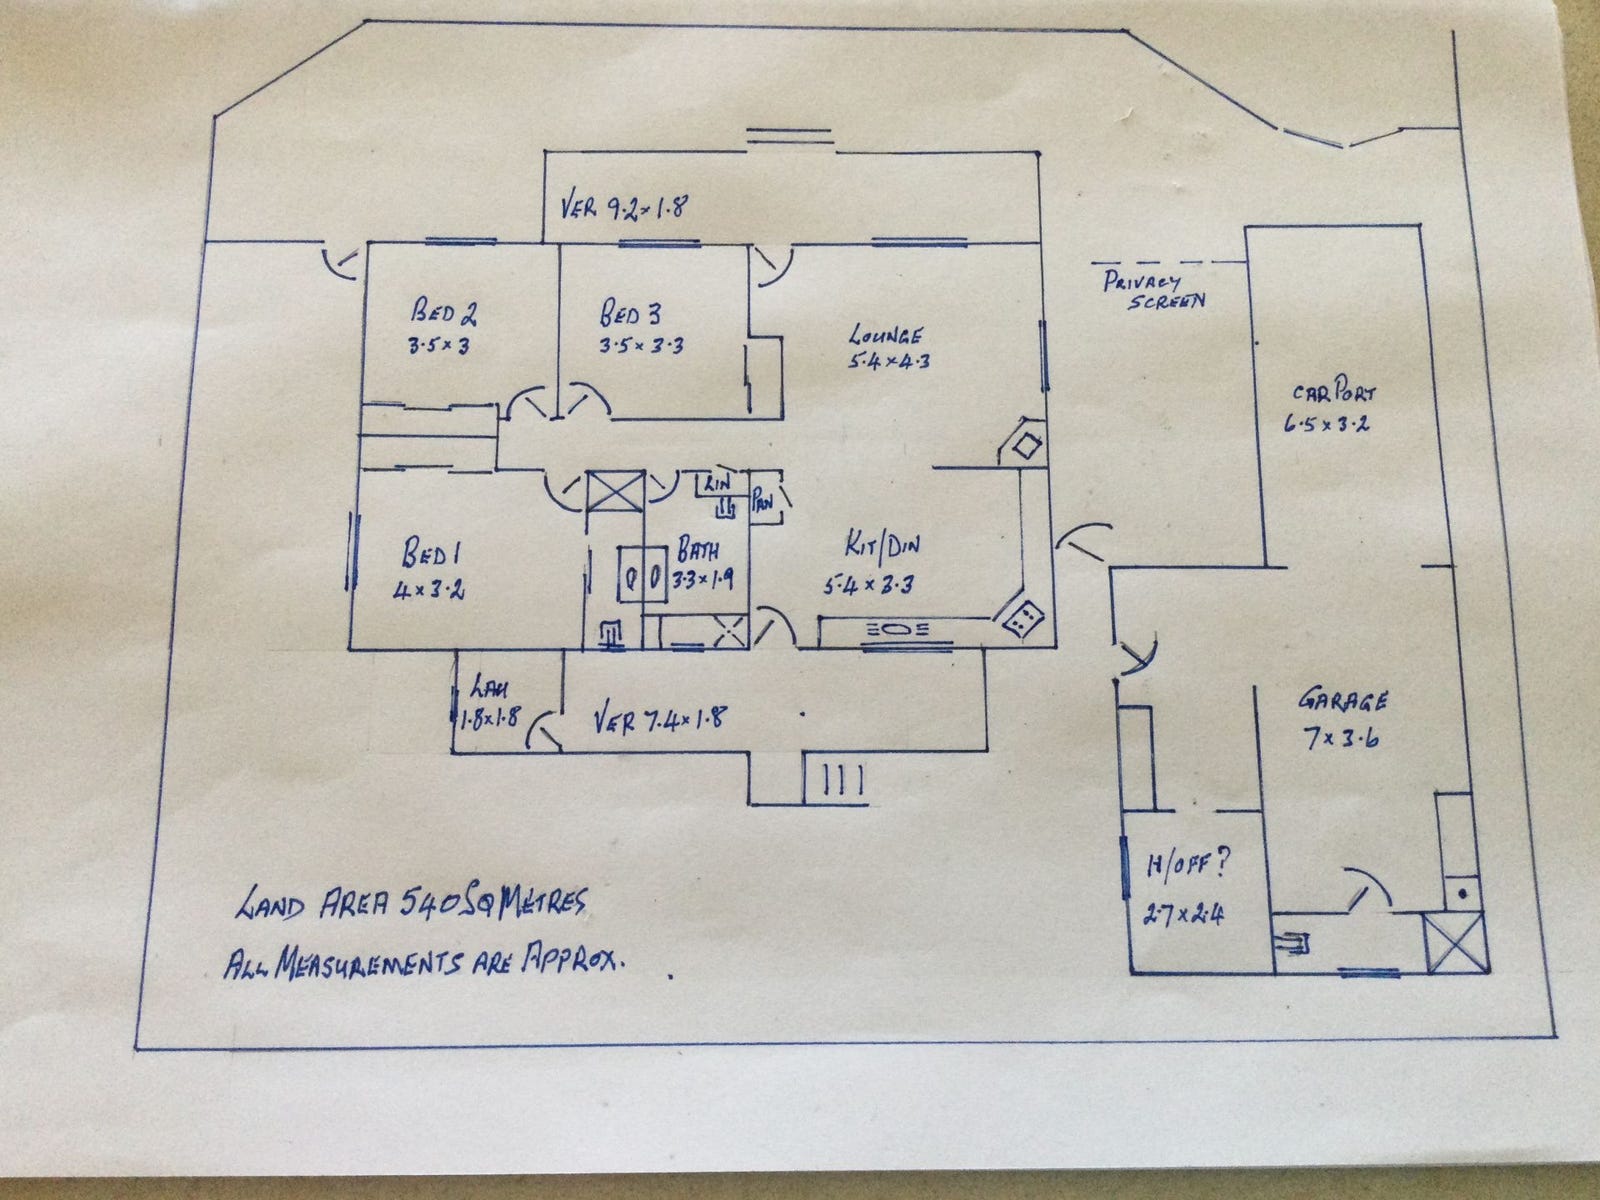 VER 9.2×1.8
BED 2
3.5×3
BED 3
3.5×3.3
LOUNGE
5.4×4.3
PRIVACY
SCREEN
CARPORT
6.5×3.2
LIN
PAN
BED 1
4×3.2
BATH
3.3×1.9
KIT/DIN
5.4×3.3
1.8×1.8
VER 7.4×1.8
GARAGE
7×3.6
H/OFF?
2.7×2.4
LAND AREA 540 SQ METRES
ALL MEASUREMENTS ARE APPROX.